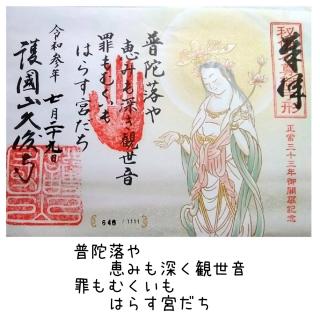 奉拝
正當三十三年御開扉記念
普陀落や
恵みも深き観世音
罪もむくいも
はらす宮だち
令和参年
七月二十九日
護國山
648 / 1111
普陀落や
恵みも深く観世音
罪もむくいも
はらす宮だち